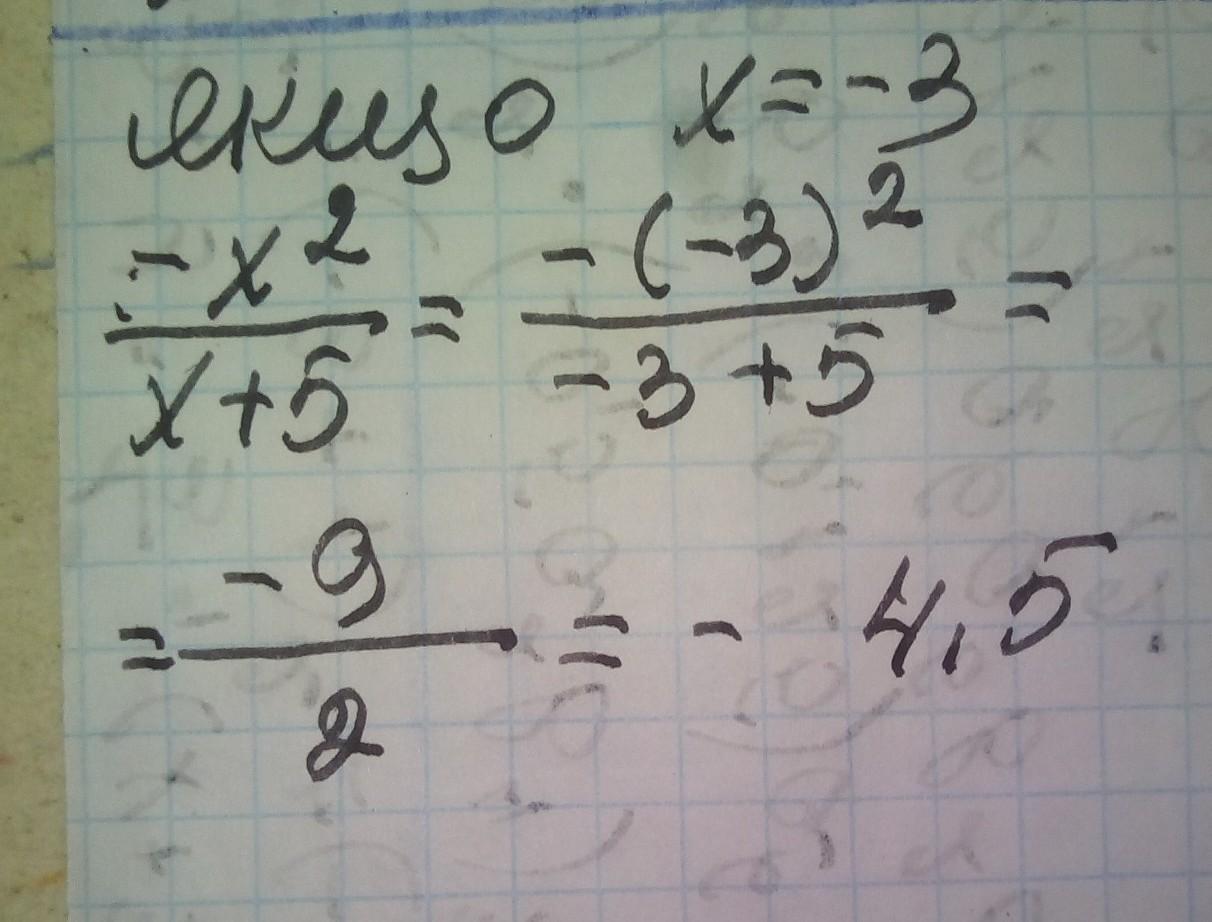 якщо x = -3
-x²/x+5 = -(-3)²/-3+5 =
= -9/2 = - 4,5